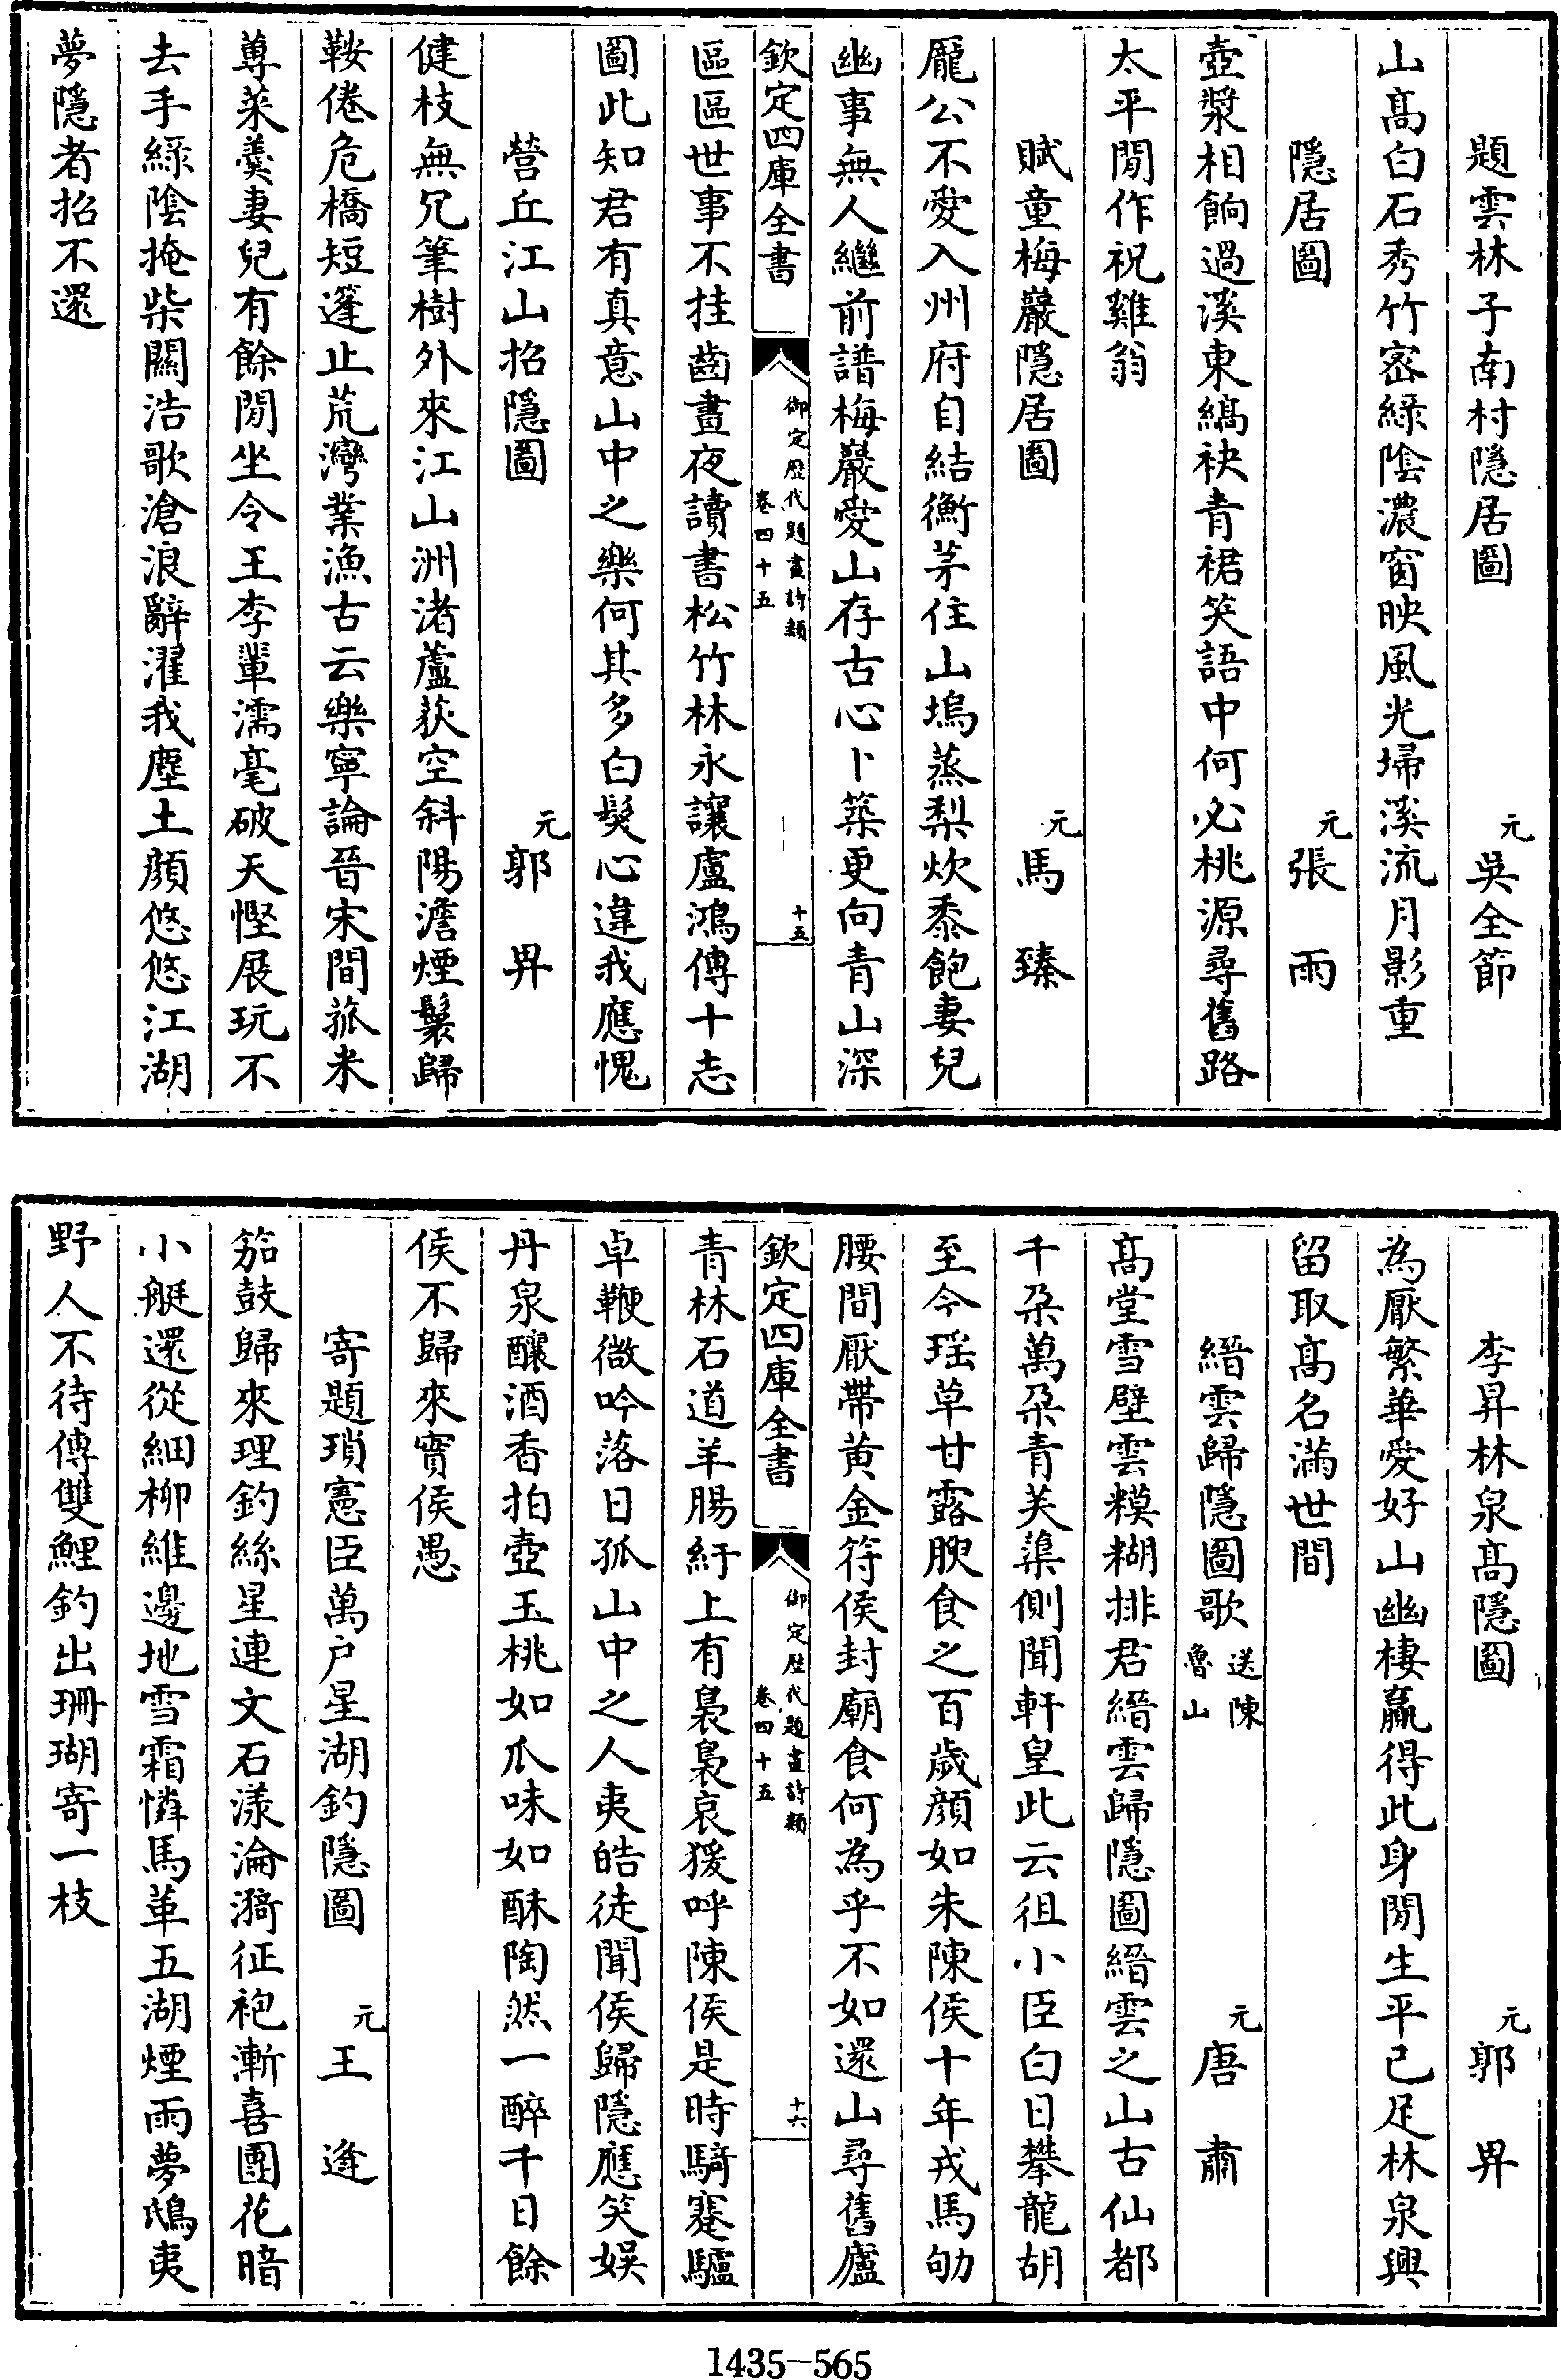 題雲林子南村隱居圖 元 吳全節
山髙白石秀竹密綠陰濃窗映風光埽溪流月影重
隱居圖 元 張雨
壺漿相餉過溪東縞袂青裙笑語中何必桃源尋舊路
太平閒作祝雞翁
賦童梅巖隱居圖 元 馬臻
龐公不愛入州府自結衡茅住山塢蒸梨炊黍飽妻兒
幽事無人繼前譜梅巖愛山存古心卜築更向青山深
欽定四庫全書 御定歴代題畫詩類 卷四十五 十五
區區世事不挂齒晝夜讀書松竹林永讓盧鴻傳十志
圖此知君有真意山中之樂何其多白髮心違我應愧
營丘江山招隱圖 元 郭畀
健枝無冗筆樹外來江山洲渚蘆荻空斜陽澹煙鬟歸
鞍倦危橋短篷止荒灣業漁古云樂寧論晉宋間菰米
蓴菜羮妻兒有餘閒坐令王李輩濡毫破天慳展玩不
去手綠陰掩柴關浩歌滄浪辭濯我塵土顔悠悠江湖
夢隱者招不還
李昇林泉髙隱圖 元 郭畀
為厭繁華愛好山幽棲贏得此身閒生平已足林泉興
留取髙名滿世間
縉雲歸隱圖歌 送陳魯山 元 唐肅
髙堂雪壁雲糢糊排君縉雲歸隱圖縉雲之山古仙都
千朶萬朶青芙蕖側聞軒皇此云徂小臣白日攀龍胡
至今瑶草甘露腴食之百歲顔如朱陳侯十年戎馬劬
腰間厭帶黄金符侯封廟食何為乎不如還山尋舊廬
欽定四庫全書 御定歴代題畫詩類 卷四十五 十六
青林石道羊腸紆上有裊裊哀猨呼陳侯是時騎蹇驢
卓鞭微吟落日孤山中之人夷皓徒聞侯歸隱應笑娱
丹泉釀酒香拍壺玉桃如瓜味如酥陶然一醉千日餘
侯不歸來實侯愚
寄題瑣憲臣萬户星湖釣隱圖 元 王逢
笳鼓歸來理釣絲星連文石漾淪漪征袍漸喜團花暗
小艇還從細栁維邊地雪霜憐馬革五湖煙雨夢鴟夷
野人不待傳雙鯉釣出珊瑚寄一枝
1435—565